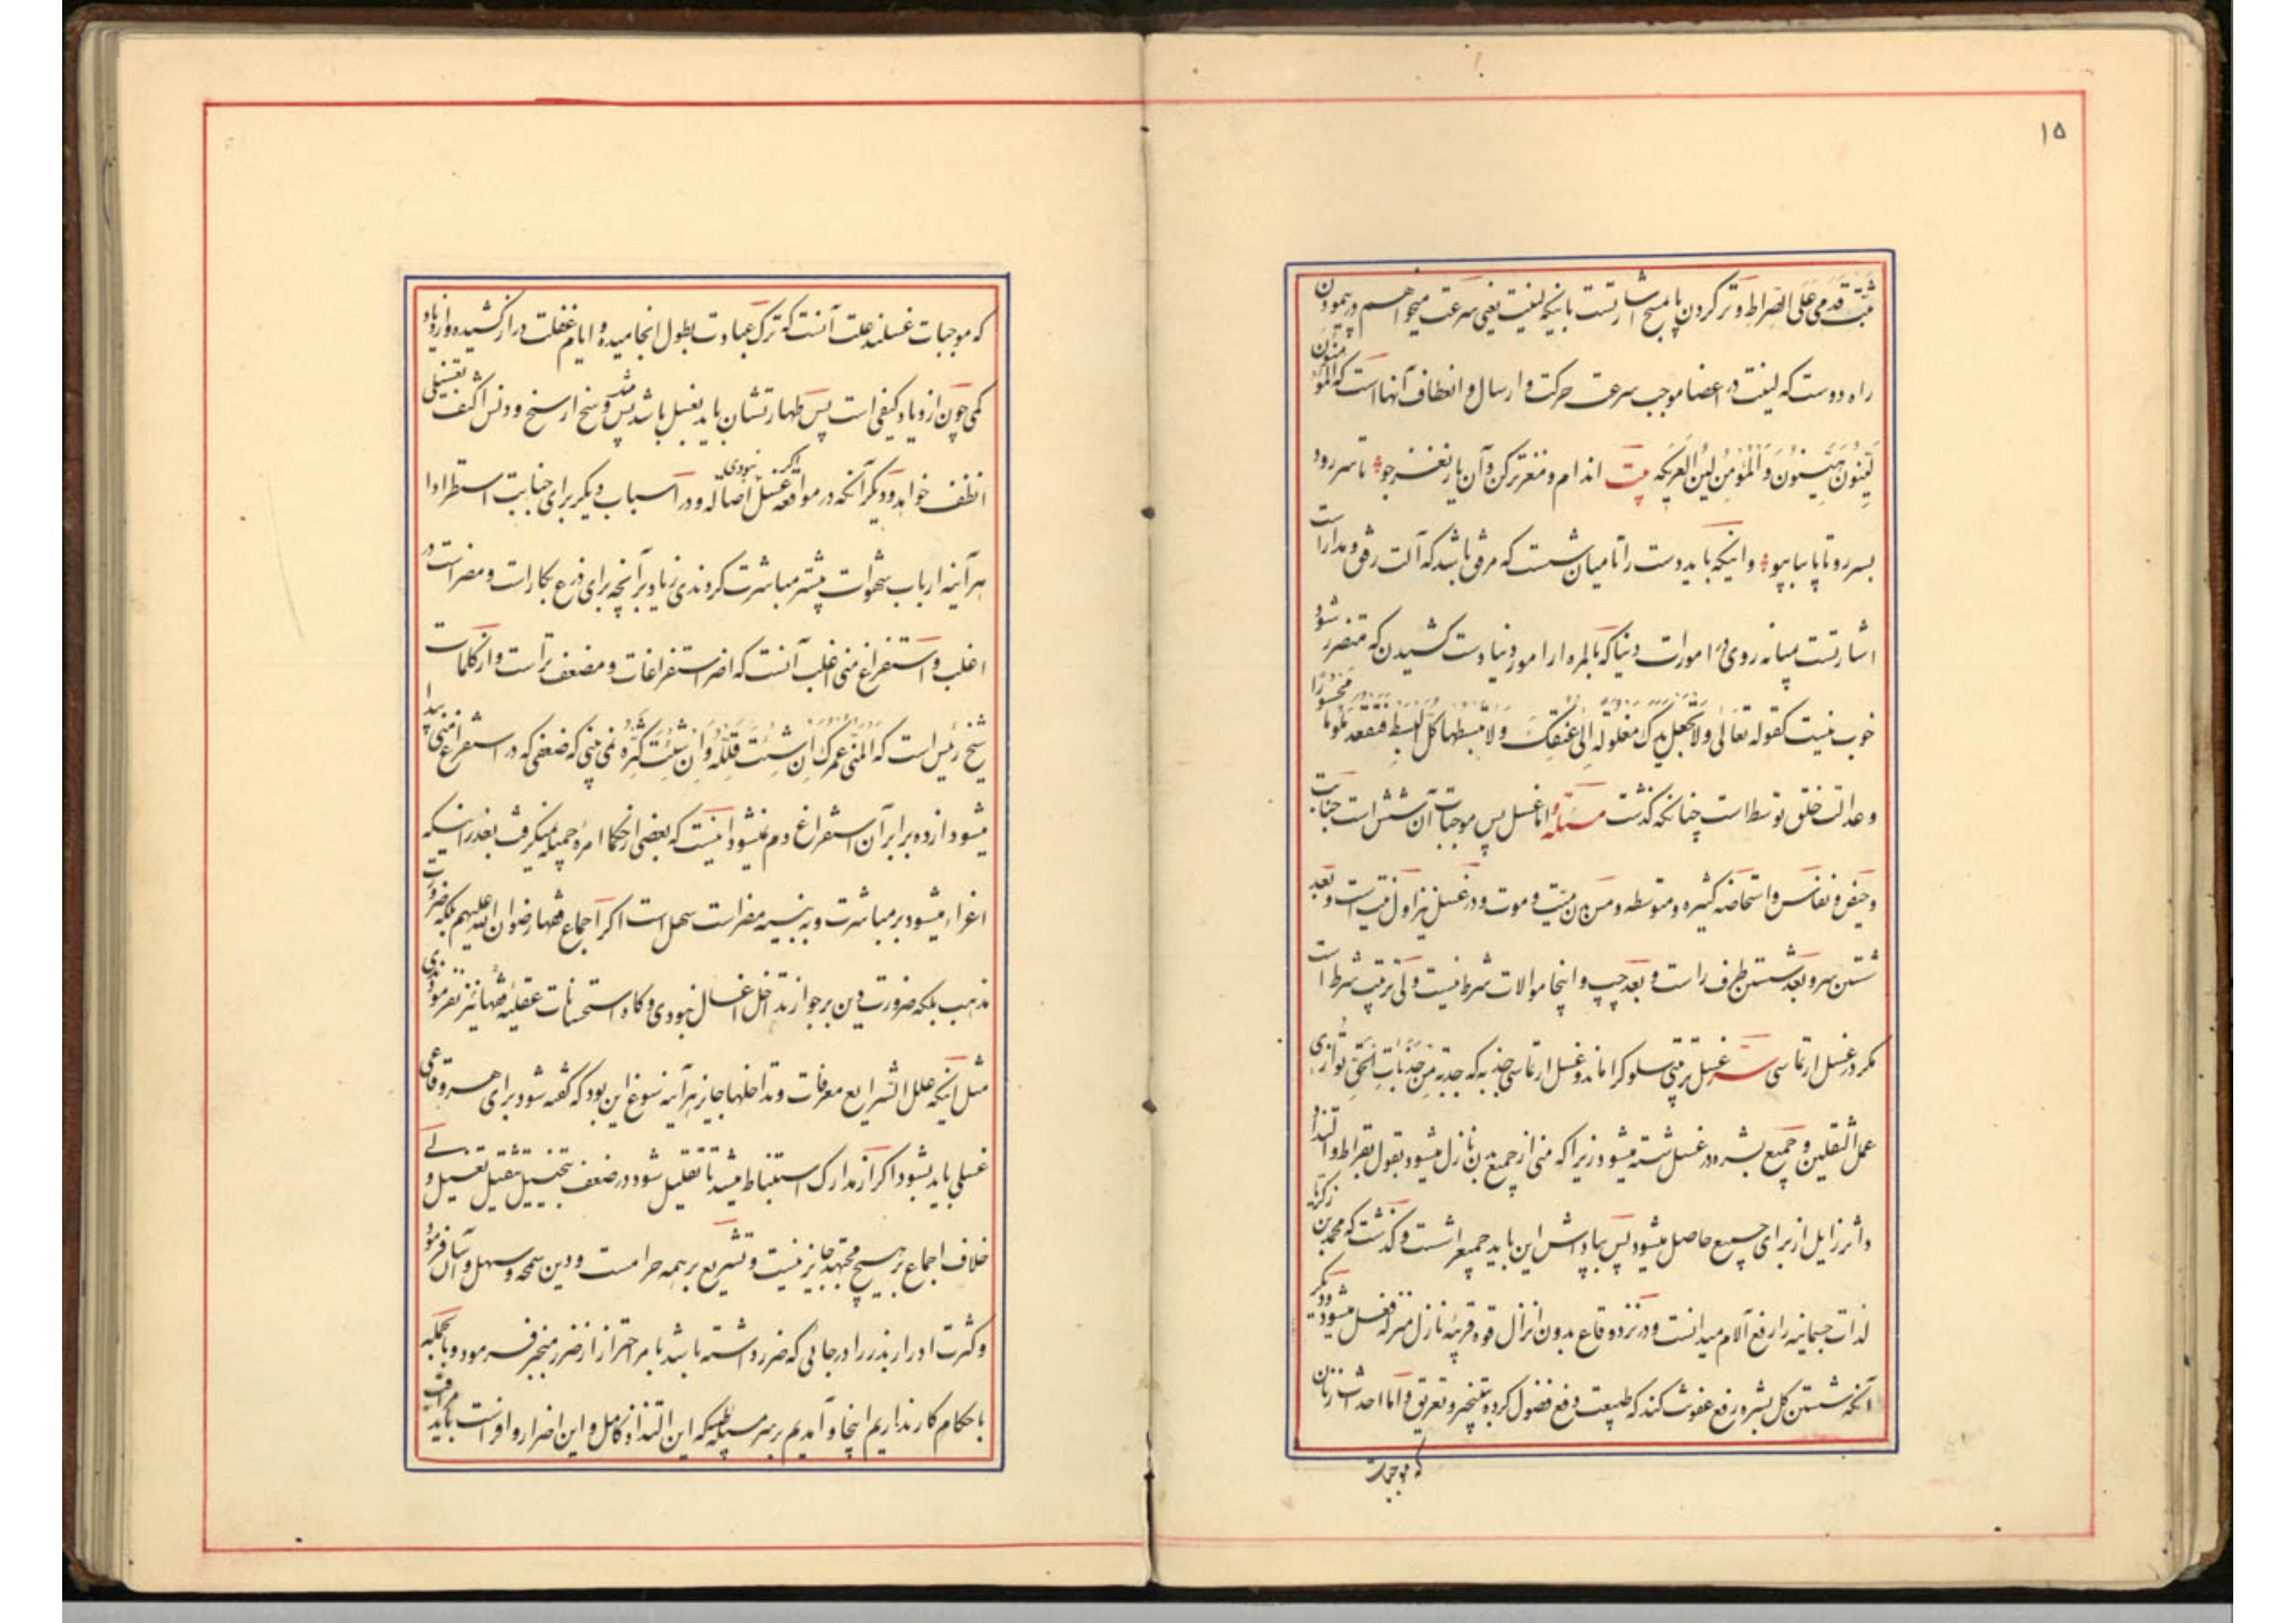 ۱۵
ثبت قدمی علی الصراط و تر کردن پا بمسح اشارتست باینکه لینت یعنی سرعت میخواهم در پیمودن
راه دوست که لینت در اعضا موجب سرعت حرکت و ارسال و انعطاف آنها است که المؤمنون
لینون هینون والمؤمن لین العریکه بیت اندام و مغز تر کن و آن یار نغز جو تا سر رود
بسر رو تا پا بپا بپو و اینکه باید دست را تا میان شست که مرفق باشد که آلت رفق و مدارا است
اشارتست میانه روی در امورات دنیا که بالمره از امور دنیا دست کشیدن که متضرر شود
خوب نیست کقوله تعالی ولا تجعل یدک مغلولة الی عنقک ولا تبسطها کل البسط فتقعد ملوما محسورا
و عدالت خلق توسط است چنانکه گذشت مسئله و اما غسل پس موجبات آن شش است جنابت
و حیض و نفاس و استحاضه کثیره و متوسطه و مس بدن میت و موت و در غسل نیز اول نیت است و بعد
شستن سر و بعد شستن طرف راست و بعد چپ و اینجا موالات شرط نیست ولی ترتیب شرط است
مگر در غسل ارتماسی غسل ترتیبی سلوک را ماند و غسل ارتماسی جذبه که جذبة من جذبات الحق توازی
عمل الثقلین و جمیع بشره در غسل شسته میشود زیرا که منی از جمیع بدن نازل میشود بقول بقراط و التذاذ
و اثر زایل از برای جمیع حاصل میشود پس بپاداش این باید جمیع را شست و گذشت که محمد بن زکریا
لذات جسمانیه را رفع آلام میدانست و در نزد وقاع بدون انزال قوه قریبه نازل منزله فعل میشود و دیگر
آنکه شستن کل بشره رفع عفونت کند که طبیعت دفع فضول کرده بتبخیر و تعریق و اما احداث زنان
که موجبات
که موجبات غسلند علت آنست که ترک عبادت بطول انجامیده و ایام غفلت دراز کشیده و ازدیاد
کمی چون ازدیاد کیفی است پس طهارتشان باید بغسل باشد پس وسخ اوسخ و دنس اکثف بغسلی
انظف خواهد و دیگر آنکه در مواقعه اگر غسل اصاله نبودی و در اسباب دیگر برای جنابت استطرادا
هر آینه ارباب شهوات بیشتر مباشرت کردندی زیاد بر آنچه برای زرع بکار است و مضر است در
اغلب و استفراغ منی اغلب آنست که اضر استفراغات و مضعف تر است و از کلمات
شیخ رئیس است که المنی عمرک ان شئت قلله وان شئت کثره نمی بینی که ضعفی که در استفراغ منی پیدا
میشود از ده برابر آن استفراغ دم نمیشود اینست که بعضی از حکما امراه جمیله نمیگرفت بعذر اینکه
اغراء میشود بر مباشرت و به بنیه مضر است سهل است اگر اجماع فقها رضوان الله علیهم بلکه ضرورت
مذهب بلکه ضرورت دین بر جواز تداخل اغسال نبودی و گاه استحسانات عقلیه فقها نیز نفرمودندی
مثل اینکه علل الشرایع معرفات و تداخلها جایز هر آینه نسوغ این بود که گفته شود برای هر وقاعی
غسلی باید بشود اگر از مدارک استنباط میشد تا تقلیل شود در ضعف بتخییل تثقیل تغسیل ولی
خلاف اجماع بر هیچ مجتهد جایز نیست و تشریع بر همه حرامست و دین سمحه و سهل و آسان فرمود
و کثرت ادرار بذر را در جایی که ضرر داشته باشد بامر احتراز از ضرر منجبر فرمود و بالجمله
باحکام کار نداریم اینجا و آمدیم بر سر مسئله طبیه که این التذاذ کامل و این اضرار وافر است باید مراقب